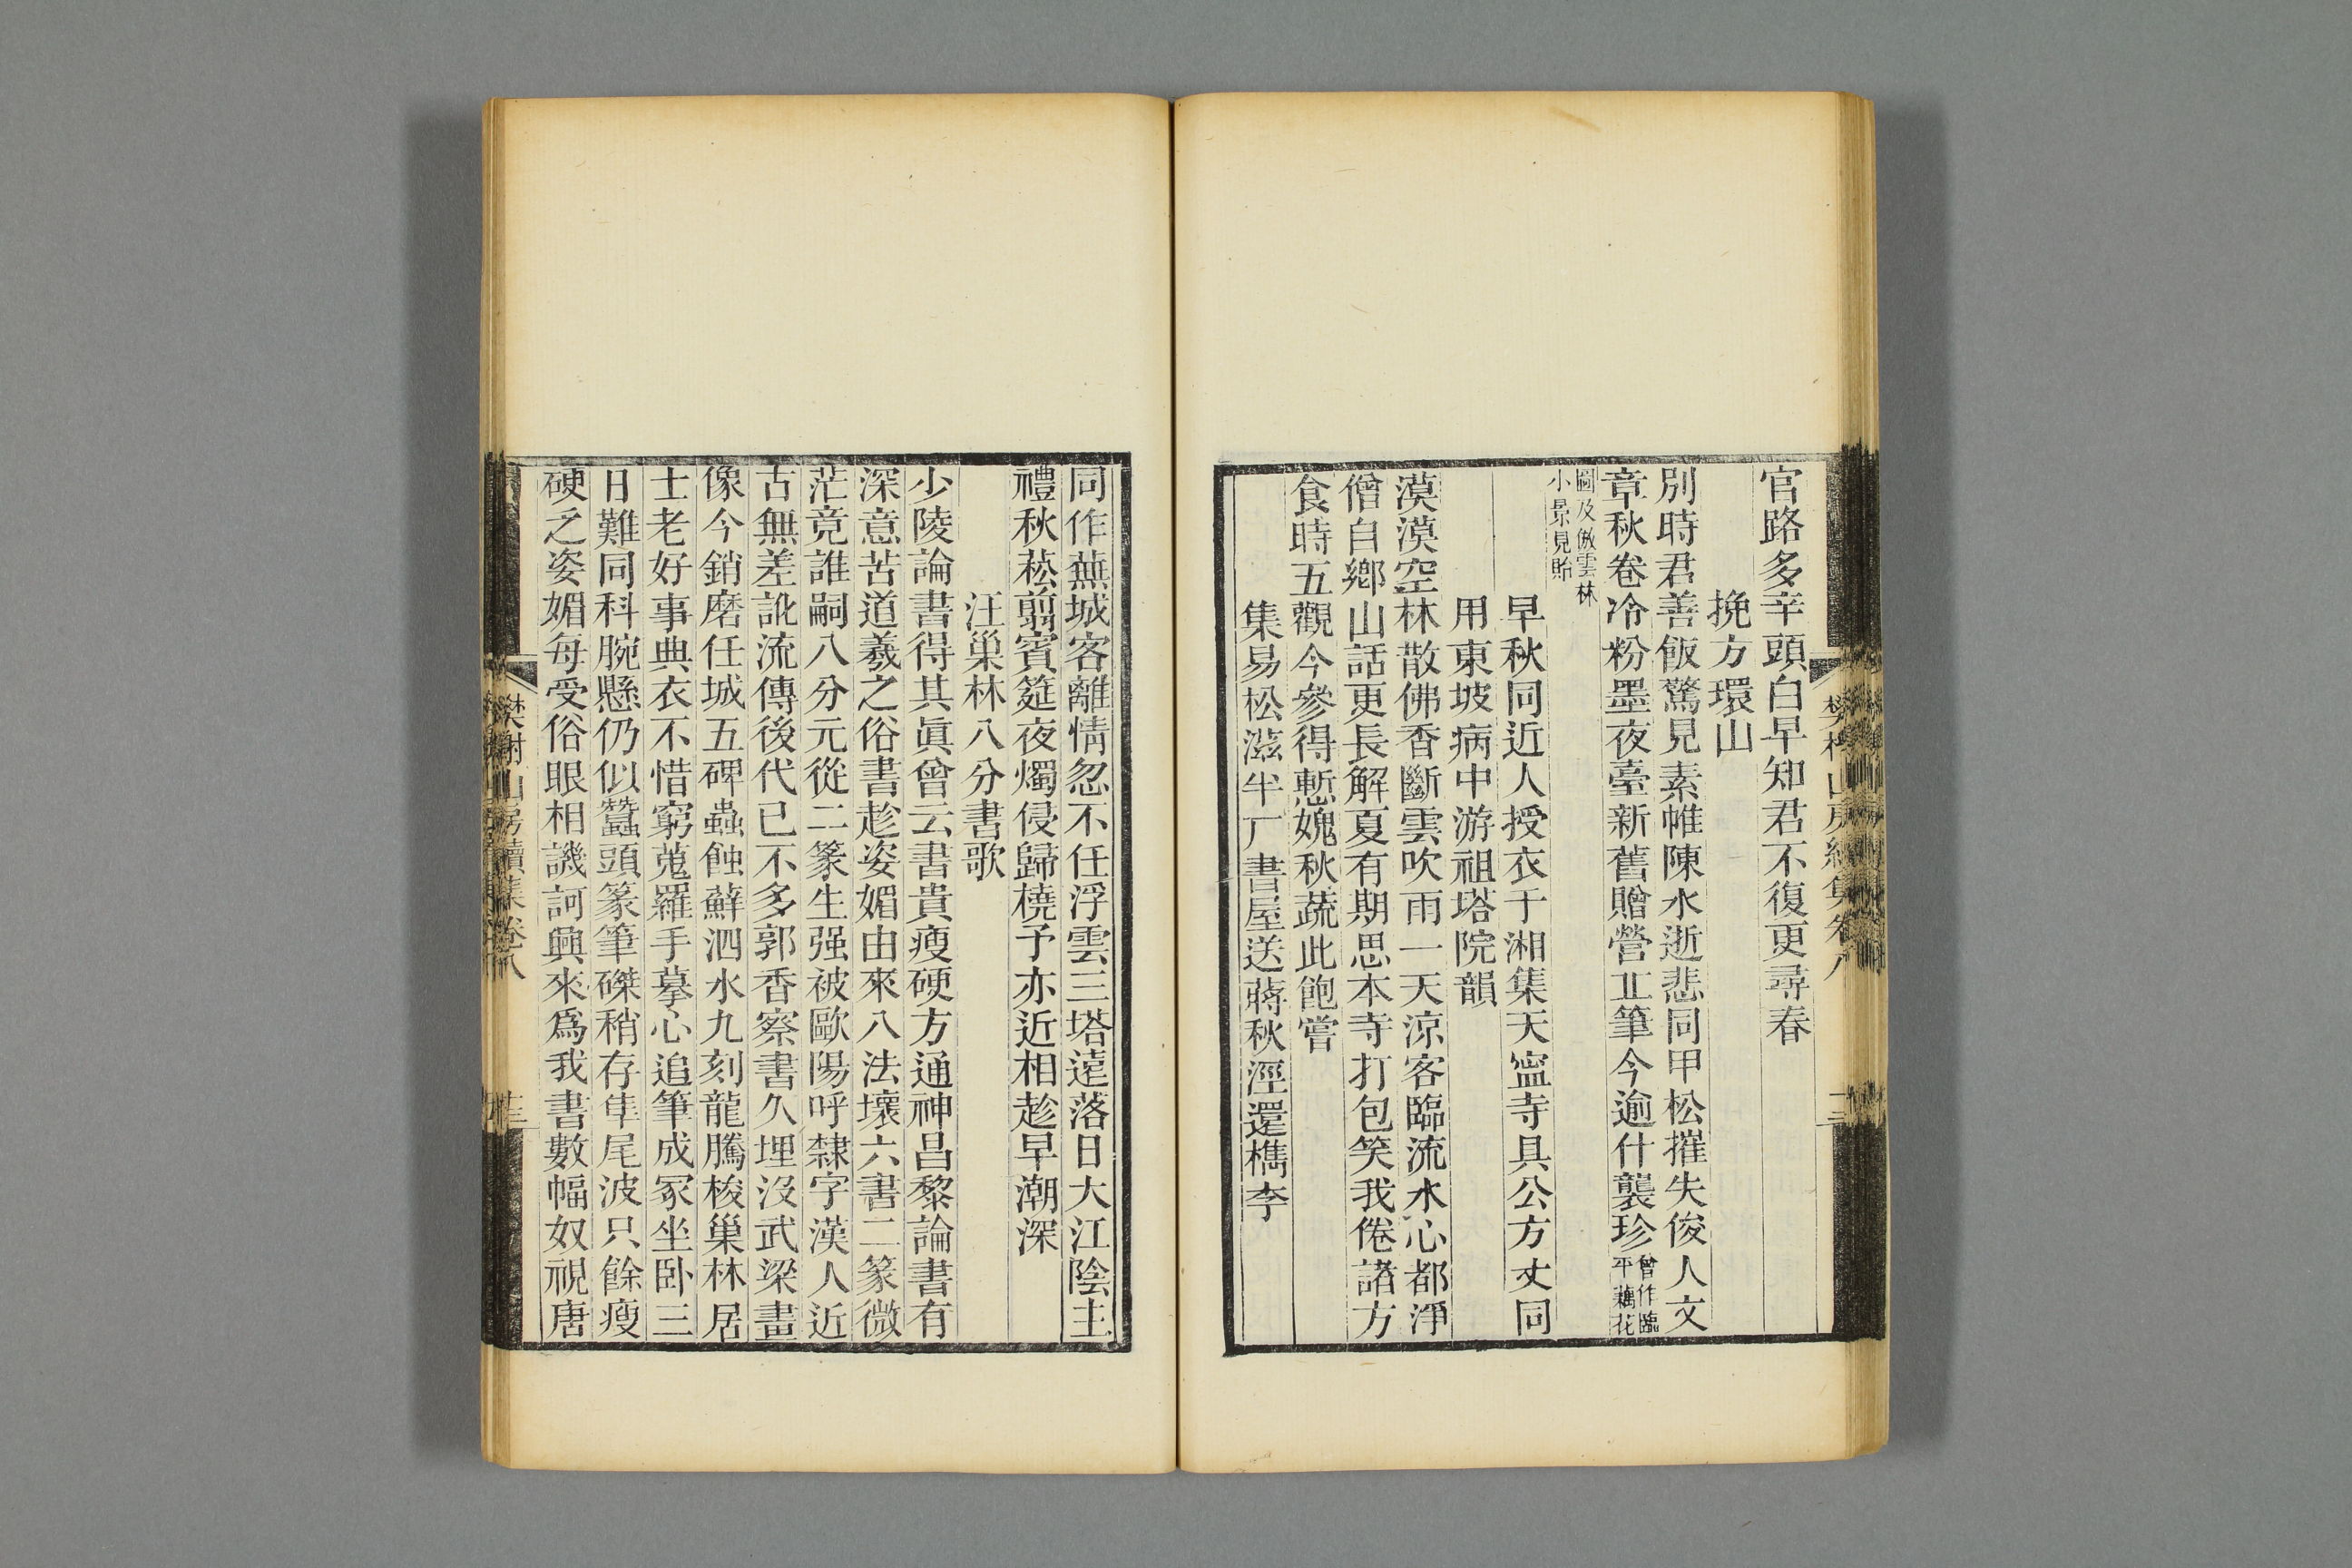 官路多辛頭白早知君不復更尋春
挽方環山
別時君善飯驚見素帷陳水逝悲同甲松摧失俊人文
章秋卷冷粉墨夜臺新舊贈營丠筆今逾什襲珍曾作臨
平藕花
圖及倣雲林
小景見貽
早秋同近人授衣于湘集天寧寺具公方丈同
用東坡病中游祖塔院韻
漠漠空林散佛香斷雲吹雨一天涼客臨流水心都淨
僧自鄉山話更長解夏有期思本寺打包笑我倦諸方
食時五觀今參得慙媿秋蔬此飽嘗
集易松滋半厂書屋送蔣秋涇還檇李
同作蕪城客離情忽不任浮雲三塔遠落日大江陰主
禮秋菘翦賓筵夜燭侵歸橈予亦近相趁早潮深
汪巢林八分書歌
少陵論書得其眞曾云書貴瘦硬方通神昌黎論書有
深意苦道羲之俗書趁姿媚由來八法壞六書二篆微
茫竟誰嗣八分元從二篆生强被歐陽呼隸字漢人近
古無差訛流傳後代已不多郭香察書久埋沒武梁畫
像今銷磨任城五碑蟲蝕蘚泗水九刻龍騰梭巢林居
士老好事典衣不惜窮蒐羅手摹心追筆成冢坐卧三
日難同科腕懸仍似蠶頭篆筆磔稍存隼尾波只餘瘦
硬乏姿媚每受俗眼相譏訶興來爲我書數幅奴視唐
樊榭山房續集卷八